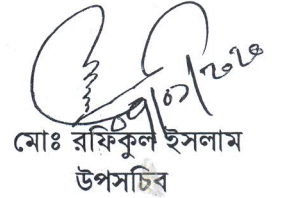 ০৭/০১/২০২০
মোঃ রফিকুল ইসলাম
উপসচিব